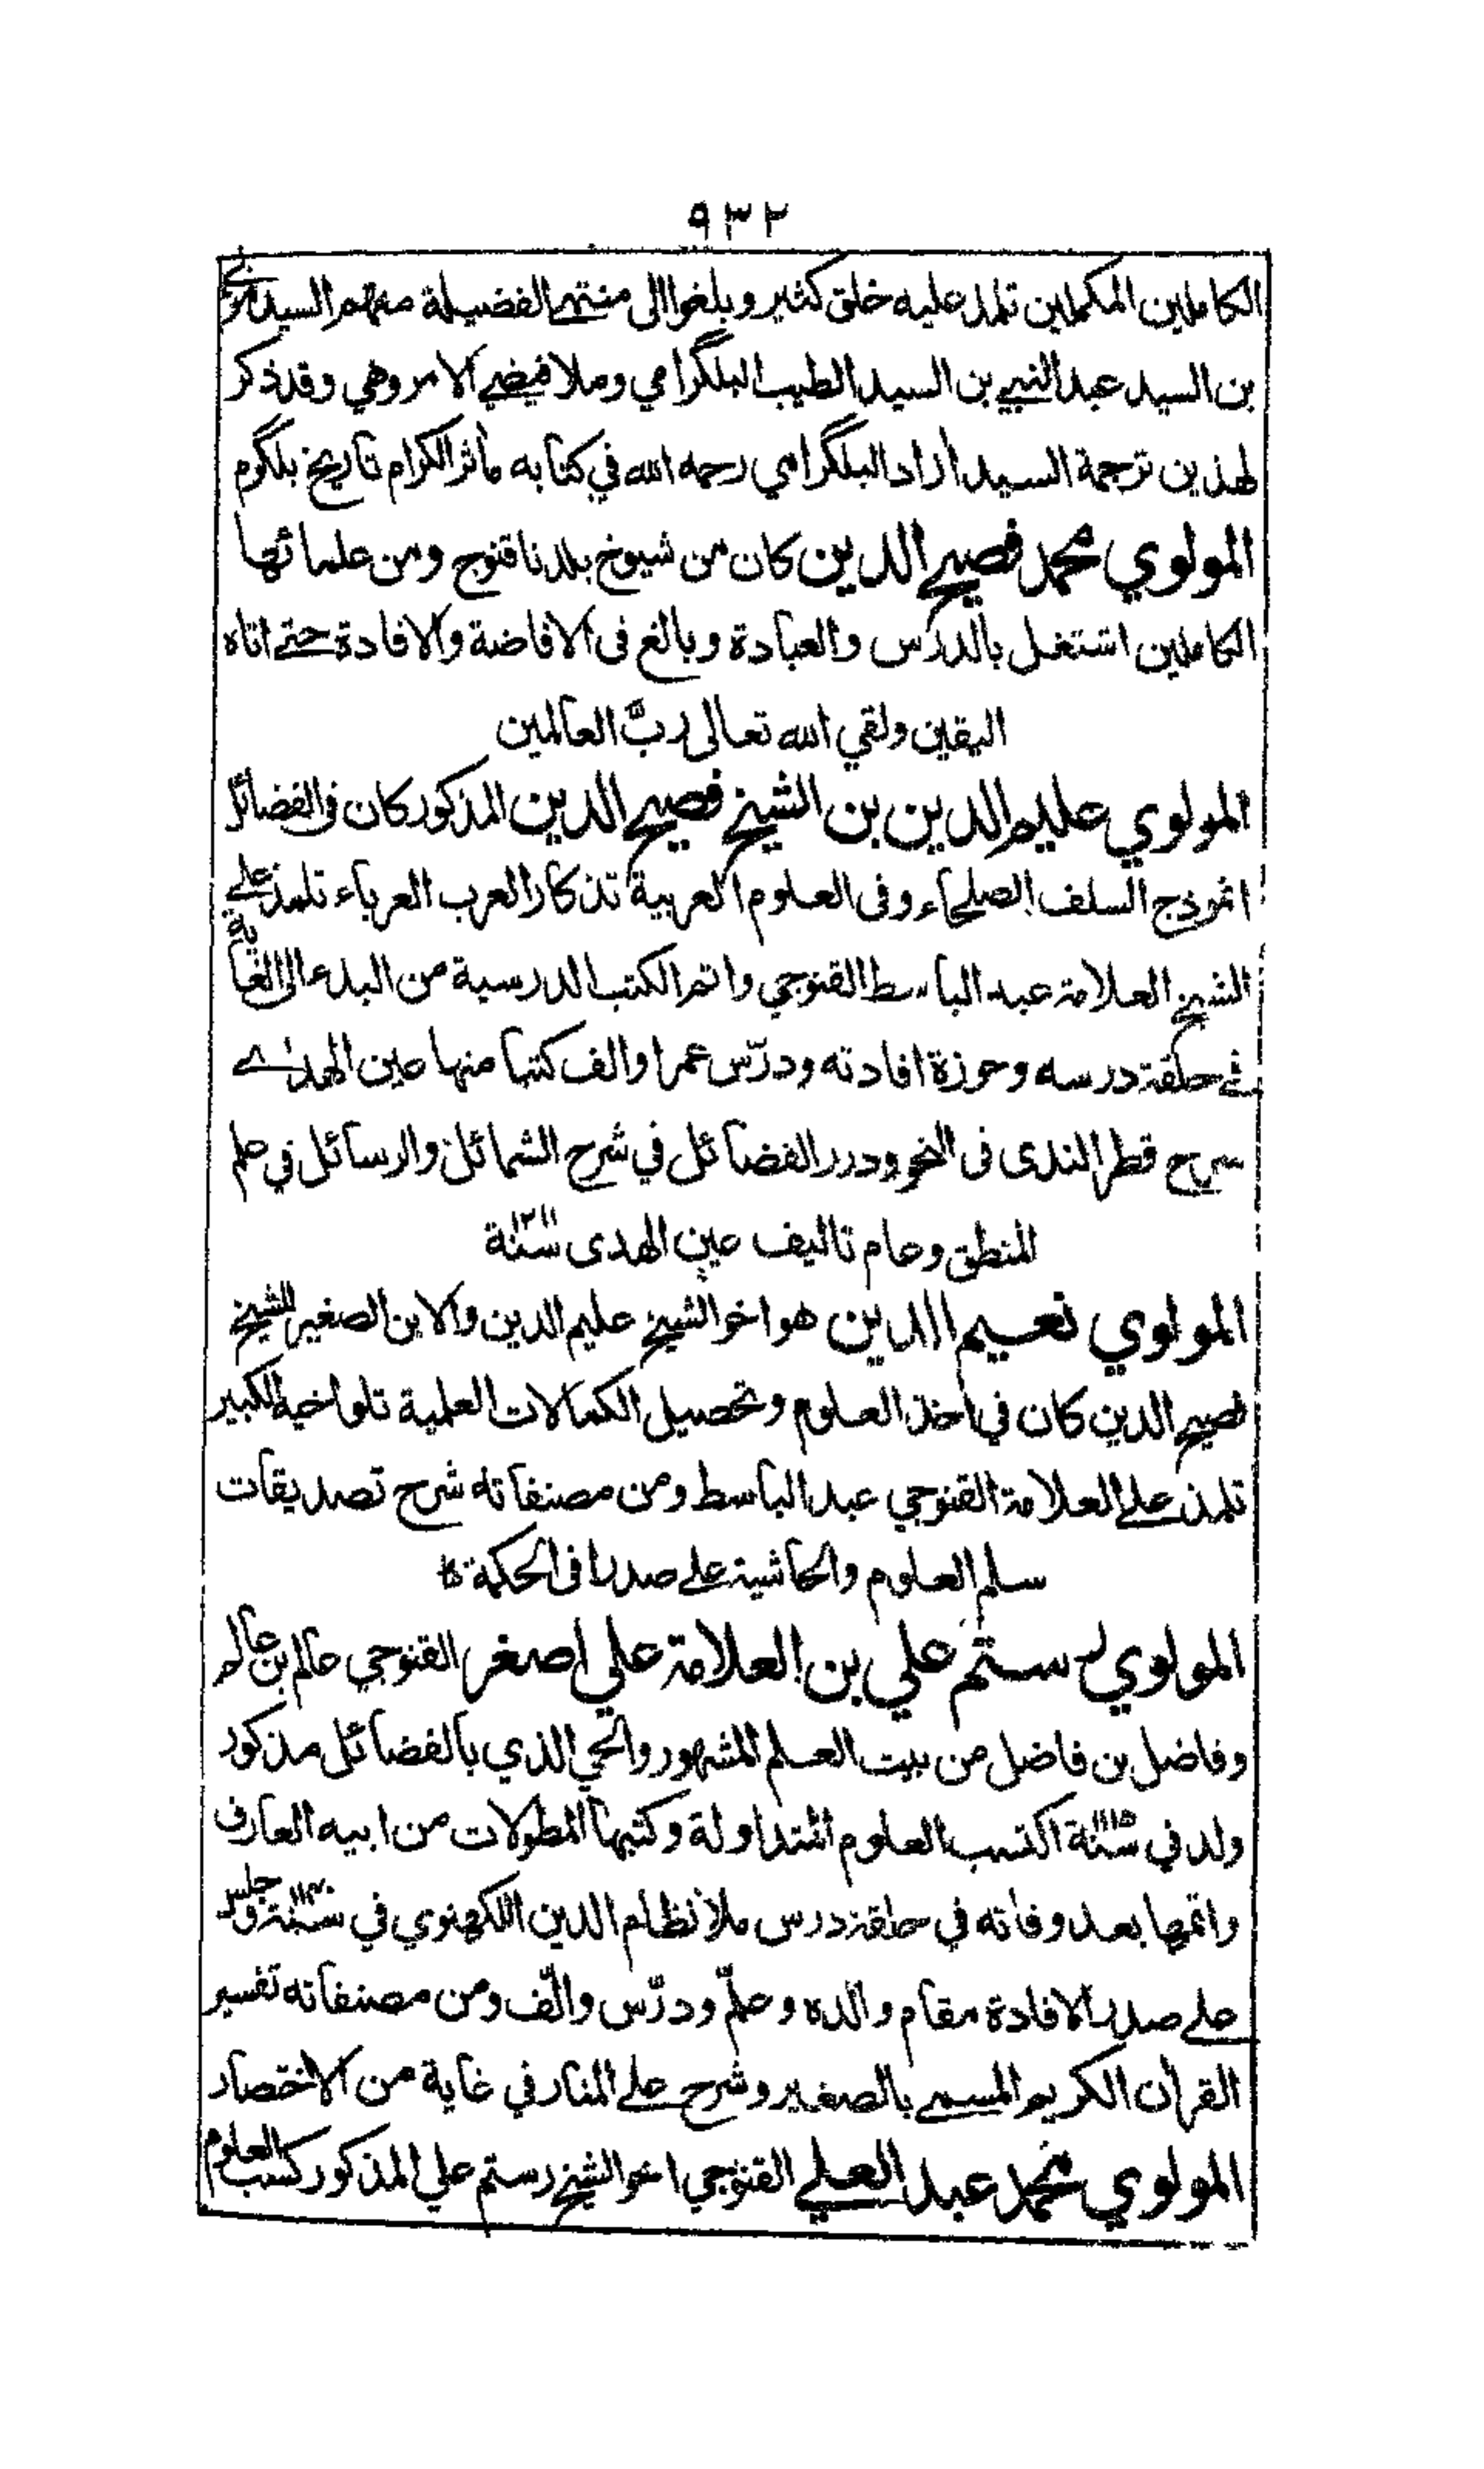 ٩٣٢
الكاملين المكملين تلمذ عليه خلق كثير وبلغوا الى منتهى الفضيلة منهم السيد
بن السيد عبد النبي بن السيد الطيب البلگرامي وملا فيضي الامروهي وقد ذكر
لهذين ترجمة السيد ازاد البلگرامي رحمه الله في كتابه مأثر الكرام تاريخ بلگرم
المولوي محمد فصيح الدين كان من شيوخ بلدنا قنوج ومن علمائها
الكاملين اشتغل بالدرس والعبادة وبالغ فى الافاضة والافادة حتى اتاه
اليقين ولقي الله تعالى ربّ العالمين
المولوي عليم الدين بن الشيخ فصيح الدين المذكور كان فى الفضائل
انموذج السلف الصلحاء وفى العلوم العربية تذكار العرب العرباء تلمذ على
الشيخ العلامة عبد الباسط القنوجي واتم الكتب الدرسية من البدء الى الغاية
في حلقة درسه وحوزة افادته ودرّس عمرا والف كتبا منها عين الهدى
شرح قطر الندى فى النحو ودرر الفضائل في شرح الشمائل والرسائل في علم
المنطق وعام تاليف عين الهدى سنة
المولوي نعيم الدين هو اخو الشيخ عليم الدين والابن الصغير للشيخ
فصيح الدين كان في اخذ العلوم وتحصيل الكمالات العلمية تلو اخيه الكبير
تلمذ على العلامة القنوجي عبد الباسط ومن مصنفاته شرح تصديقات
سلم العلوم والحاشية على صدرا فى الحكمة
المولوي رستم علي بن العلامة علي اصغر القنوجي عالم بن عالم
وفاضل بن فاضل من بيت العلم المشهور والحي الذي بالفضائل مذكور
ولد في سنة ١١١٥ اكتسب العلوم المتداولة وكتبها المطولات من ابيه العارف
واتمها بعد وفاته في حلقة درس ملا نظام الدين اللكهنوي في سنة ١١٤٠ وجلس
على صدر الافادة مقام والده وعلّم ودرّس والّف ومن مصنفاته تفسير
القرأن الكريم المسمى بالصغير وشرح على المنار في غاية من الاختصار
المولوي محمد عبد العلي القنوجي اخو الشيخ رستم علي المذكور كسب العلوم